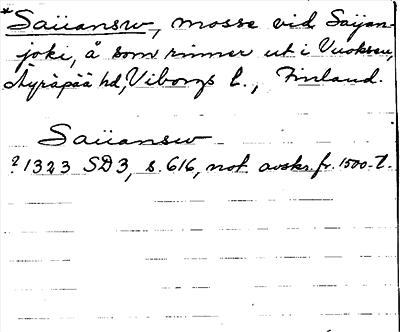 *Saiiansuo, mosse vid Saijan-
joki, å som rinner ut i Vuoksen,
Äyräpää hd, Viborgs l., Finland.
Saiiansuo
? 1323 SD3, s. 616, not. avskr. fr. 1500-t.